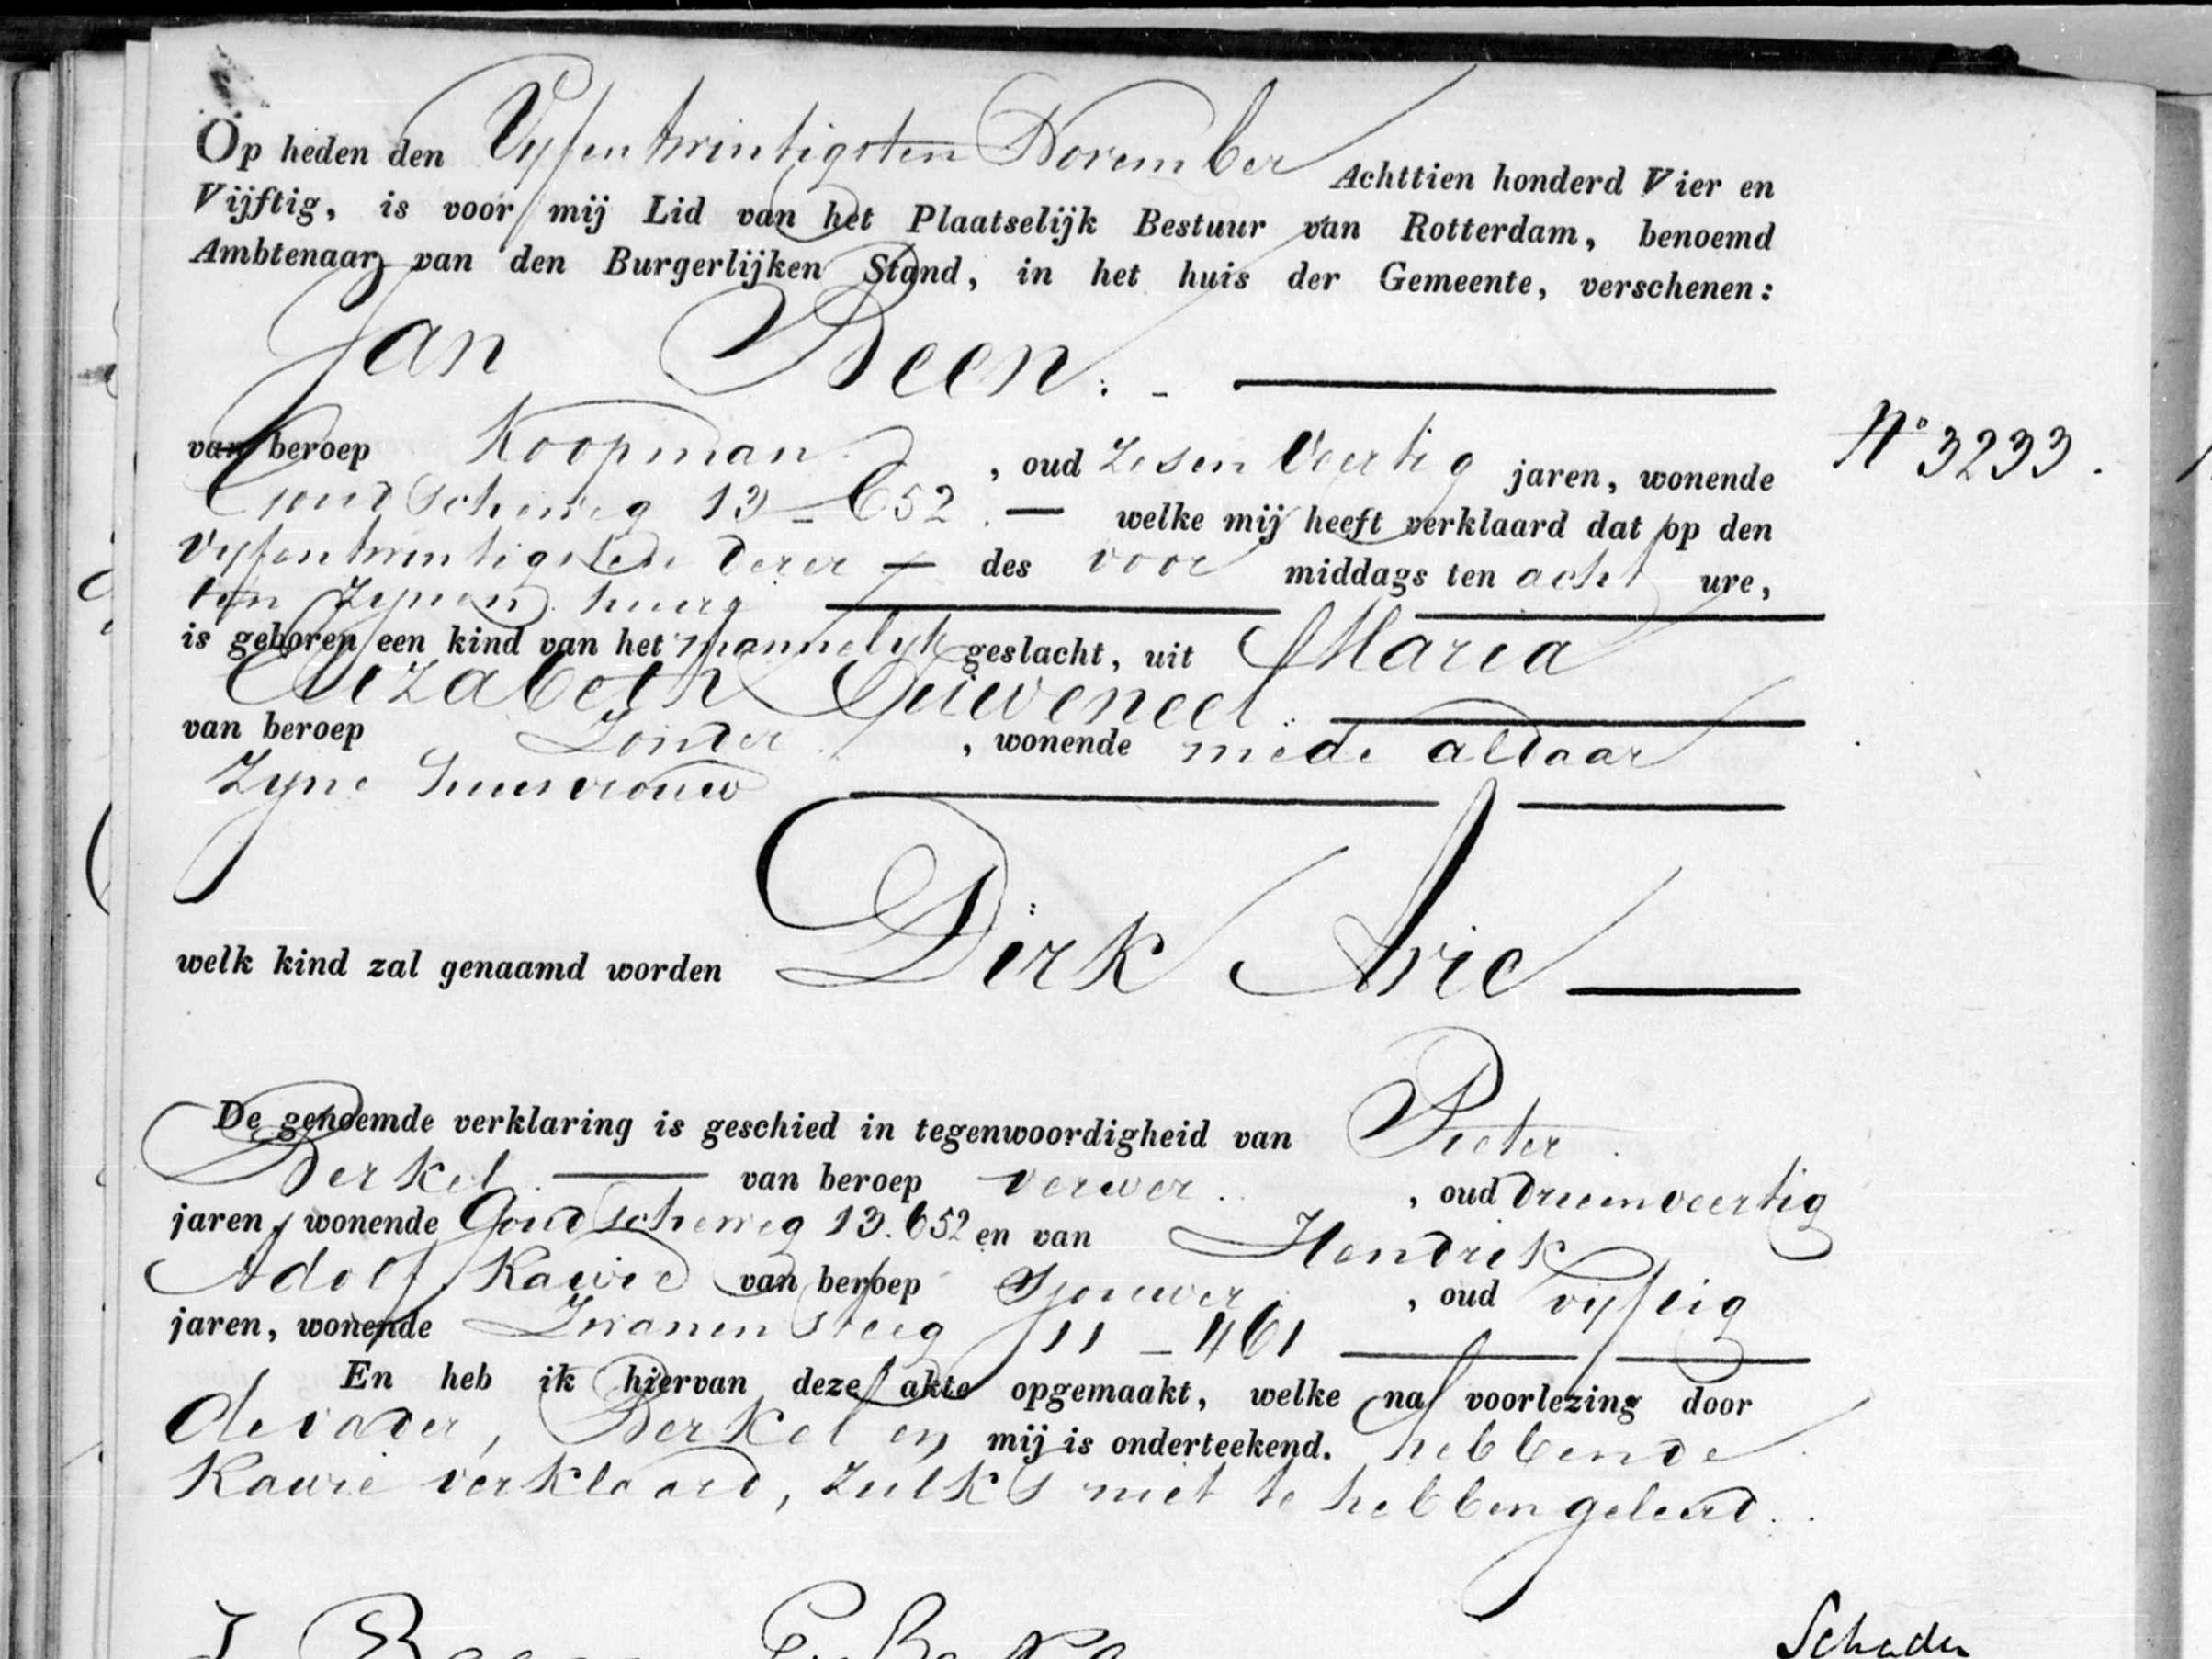 Op heden den Vyfentwintigsten November Achttien honderd Vier en
Vijftig, is voor mij Lid van het Plaatselijk Bestuur van Rotterdam, benoemd
Ambtenaar van den Burgerlijken Stand, in het huis der Gemeente, verschenen:
Jan Been.
van beroep Koopman, oud Zesen Veertig jaren, wonende
Goudscheweg 13-652. — welke mij heeft verklaard dat op den
Vyfentwintigsten dezer — des voor middags ten acht ure,
ten Zynen huize
is geboren een kind van het mannelyk geslacht, uit Maria
Elizabeth Quiveneel.
van beroep Zonder, wonende mede aldaar
Zyne huisvrouw
welk kind zal genaamd worden Dirk Arie
De genoemde verklaring is geschied in tegenwoordigheid van Pieter
Berkel. van beroep verwer., oud drieenveertig
jaren, wonende Goudscheweg 13.652 en van Hendrik
Adolf Kawie van beroep Sjouwer, oud vyftig
jaren, wonende Zwanensteeg 11-461
En heb ik hiervan deze akte opgemaakt, welke na voorlezing door
de vader, Berkel en mij is onderteekend. hebbende
Kawie verklaard, zulks niet te hebben geleerd.
J Been
Schade
N° 3233.